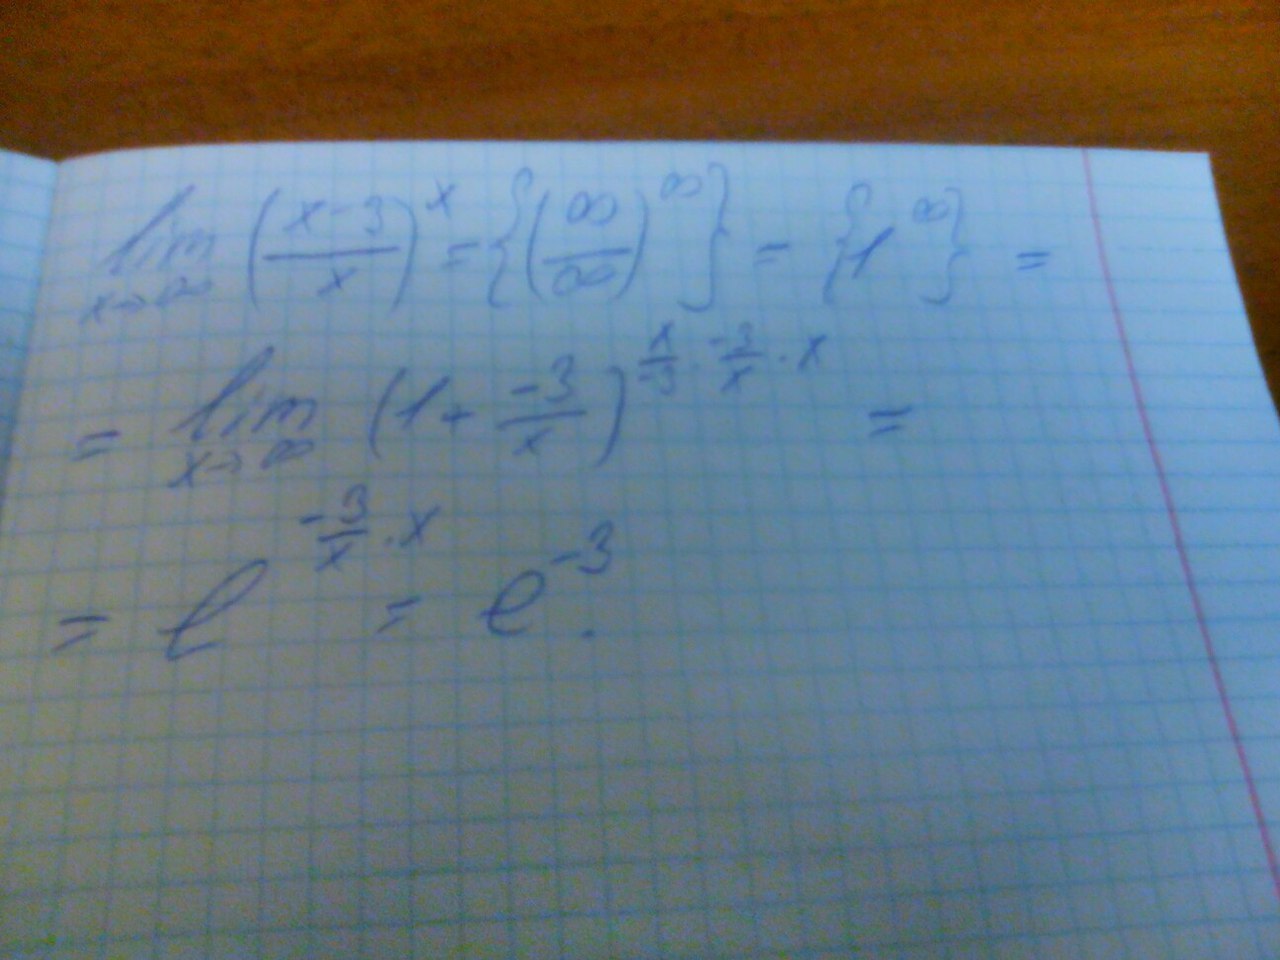 lim x→∞ ((x-3)/x)^x = {(∞/∞)^∞} = {1^∞} =
= lim x→∞ (1 + (-3)/x)^(x/(-3) · (-3)/x · x) =
= e^((-3)/x · x) = e^(-3).